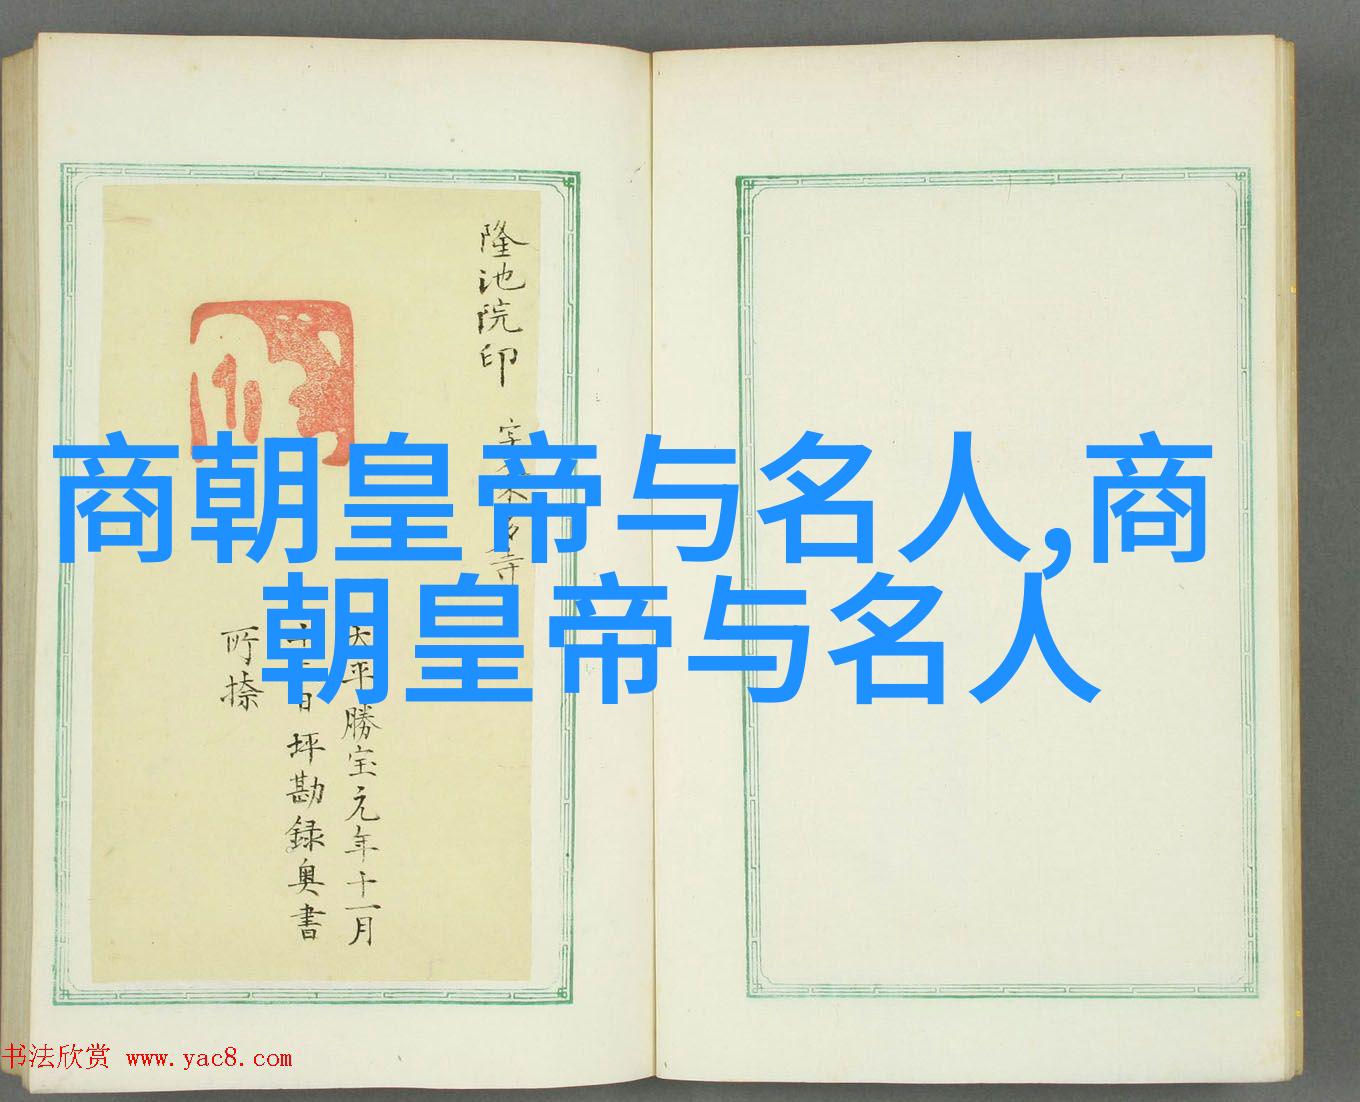 隆池院印
太平勝宝元年十一月
十一日坪勘録奥書
所捺
商朝皇帝与名人,商
朝皇帝与名人
书法欣赏 www.yac8.com